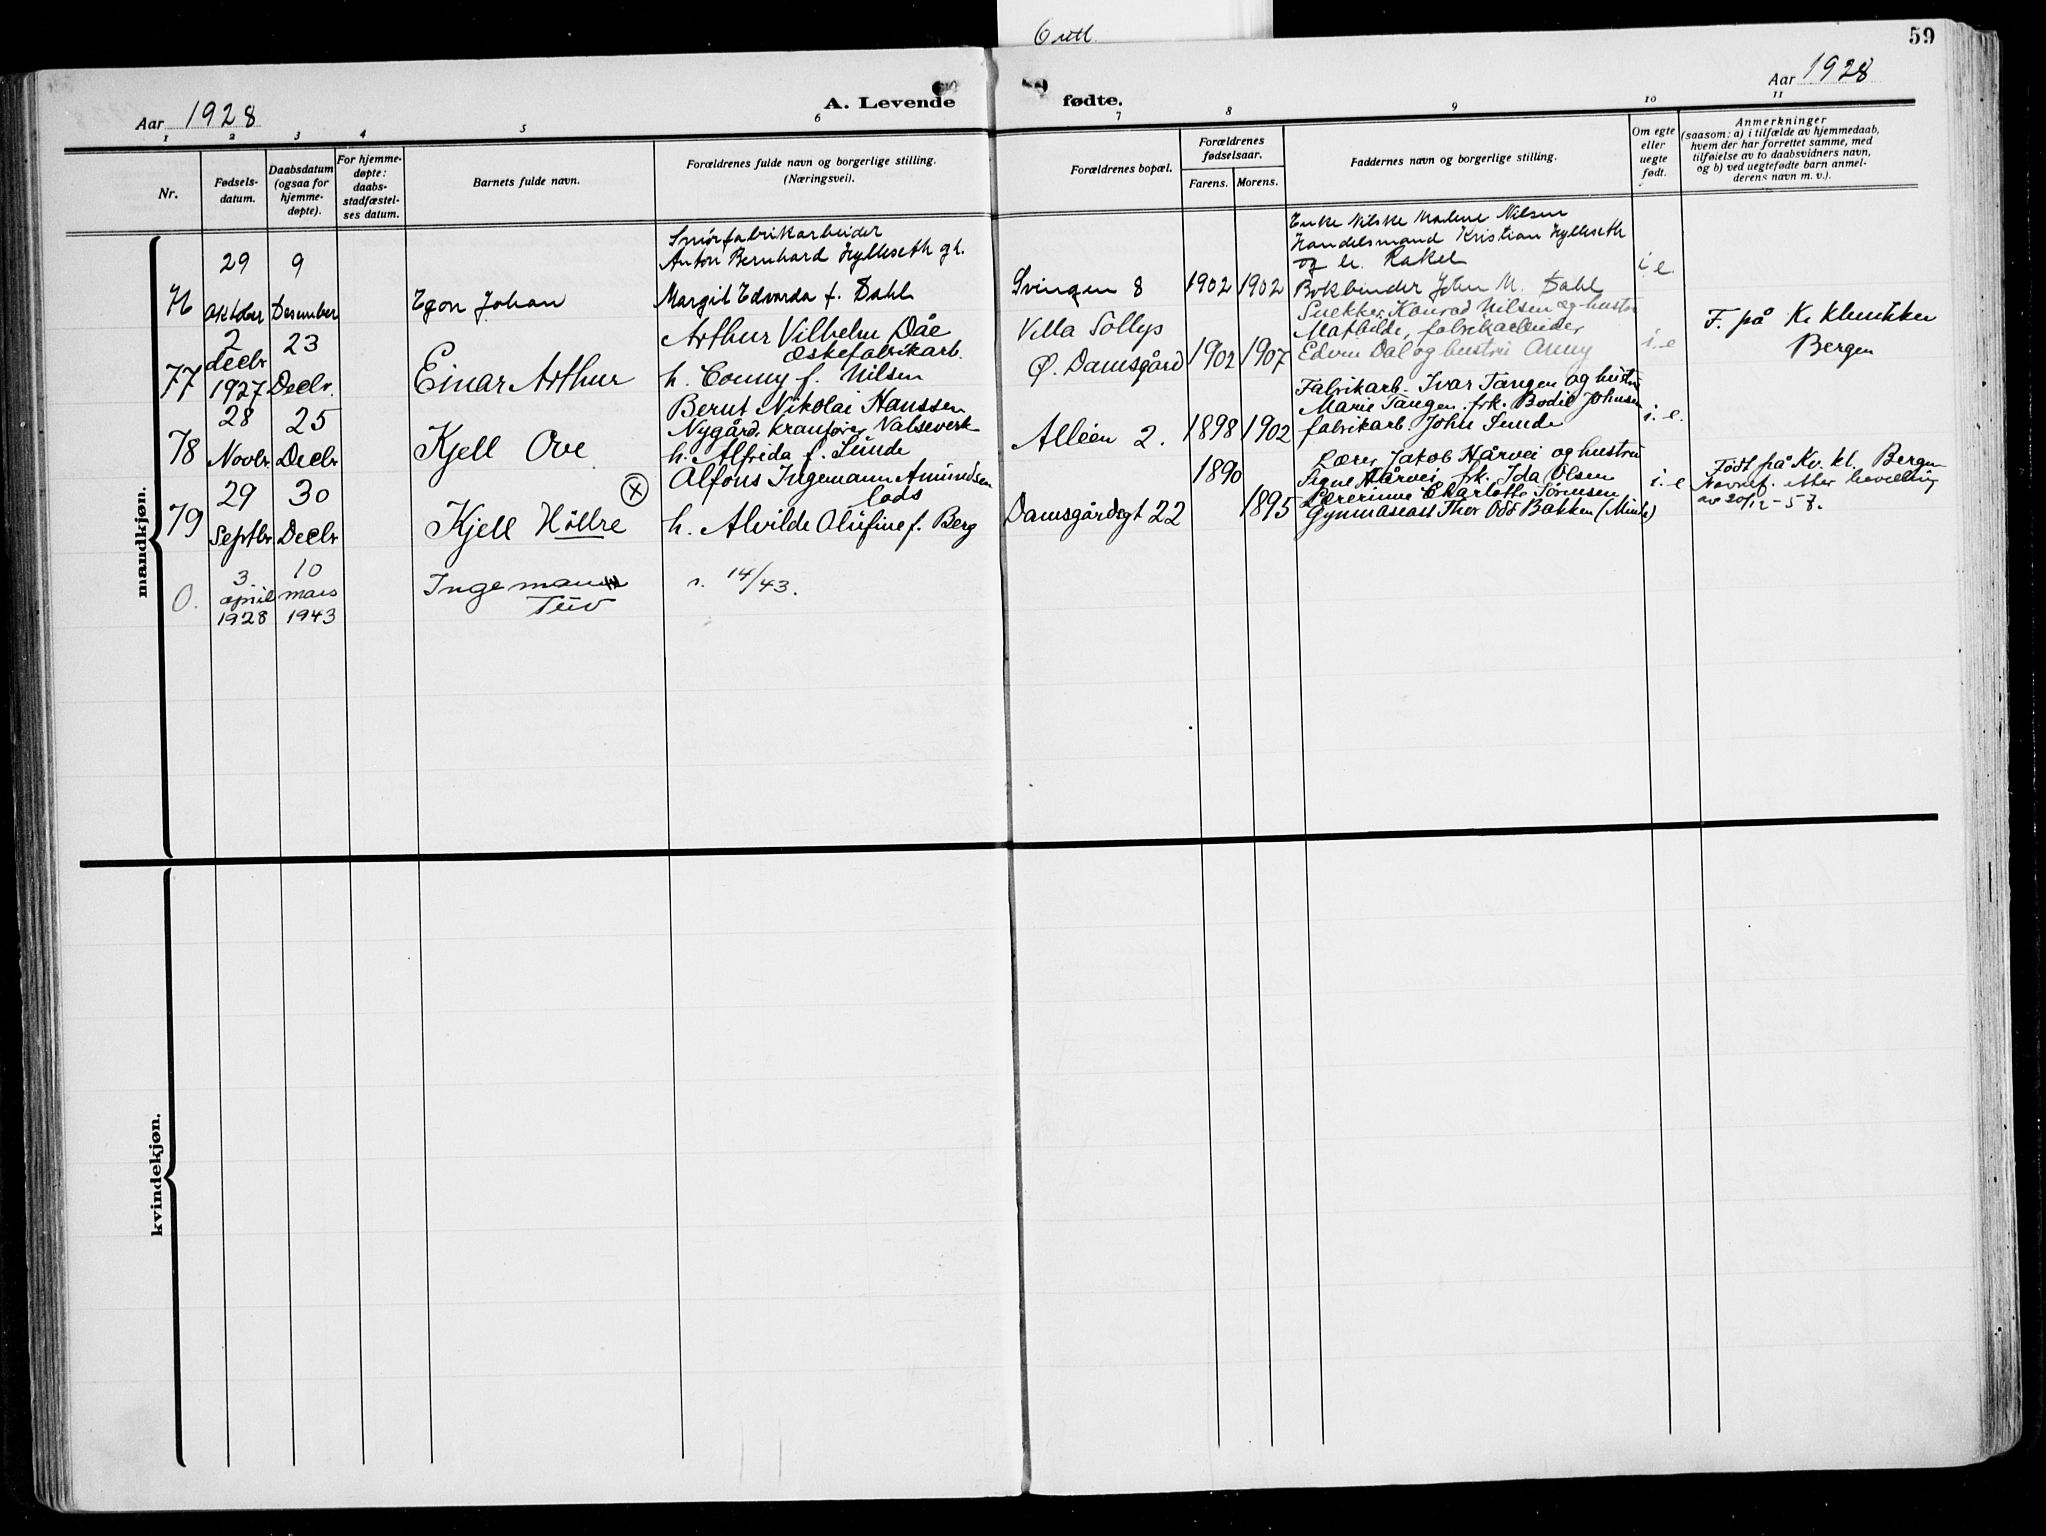 6 utl.
59
Aar 1928
A. Levende
fødte.
Aar 1928
1 2 3 4 5 6 7 8 9 10 11
Nr.
Fødsels-
datum.
Daabsdatum
(ogsaa for
hjemme-
døpte).
For hjemme-
døpte:
daabs-
stadfæstel-
ses datum.
Barnets fulde navn.
Forældrenes fulde navn og borgerlige stilling.
(Næringsvei).
Forældrenes bopæl.
Forældrenes
fødselsaar.
Farens. Morens.
Faddernes navn og borgerlige stilling.
Om egte
eller
uegte
født.
Anmerkninger
(saasom: a) i tilfælde av hjemmedaab,
hvem der har forrettet samme, med
tilføielse av to daabsvidners navn,
og b) ved uegtefødte barn anmel-
derens navn m. v.).
mandkjøn.
76
29
Oktober
9
Desember
Egon Johan
Smörfabrikarbeider
Anton Bernhard Hylleseth og h.
Margit Edvarda f. Dahl
Svingen 8
1902 1902
Enke Milske Malene Nilsen
Handelsmand Kristian Hylleseth
og h. Rakel
Bokbinder John M. Dahl
i e.
77
2
decbr
1927
23
Decbr.
Einar Arthur
Arthur Vilhelm Dåe
æskefabrikarb.
h. Conny f. Nilsen
Villa Sollys
Ø. Damsgård
1902 1907
Snekker Konrad Nilsen og hustru
Mathilde, fabrikarbeider
Edvin Dal og hustru Anny
i. e
F. på Kv klinikken
Bergen
78
28
Novbr.
25
Decbr
Kjell Ove
Bernt Nikolai Hanssen
Nygård, kranfører Valseverk
h. Alfrida f. Sunde
Alléen 2.
1898 1902
Fabrikarb. Ivar Tangen og hustru
Marie Tangen. frk. Bodil Johnsen
fabrikarb. John Sunde
i. e.
79
29
Septbr
30
Decbr
Kjell Höllre
Alfons Ingemann Amundsen
lods
h. Alvilde Olufine f. Berg
Damsgårdsgt 22
1890
1895
Lærer Jakob Hårvei og hustru
Signe Hårvei, frk. Ida Olsen
Lærerinne Charlotte Sørensen
Gymnasiast Thor Odd Bakken (Minde)
i. e
Født på Kv. kl. Bergen
Navnef. etter bevilling
av 20/12 - 57.
0.
3.
april
1928
10
mars
1943
Ingemann
Tuv
n. 14/43.
kvindekjøn.